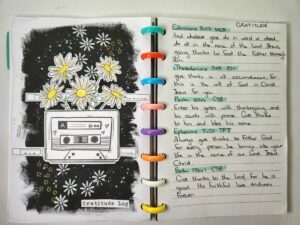 A
Gratitude Log
GRATITUDE
Colossians 3v17 NKJV
And whatever you do in word or deed,
do all in the name of the Lord Jesus,
giving thanks to God the Father through
Him
1 Thessalonians 5v18 ESV
give thanks in all circumstances for
this is the will of God in Christ
Jesus for you
Psalm CSB
Enter his gates with thanksgiving and
his courts with praise. Give thanks
to him and bless his name
Ephesians 5v20 TPT
Always give thanks to Father God
for every person he brings into your
life in the name of our Lord Jesus
Christ.
Psalm CSB
Give thanks to the Lord, for he is
good. His faithful love endures
forever.